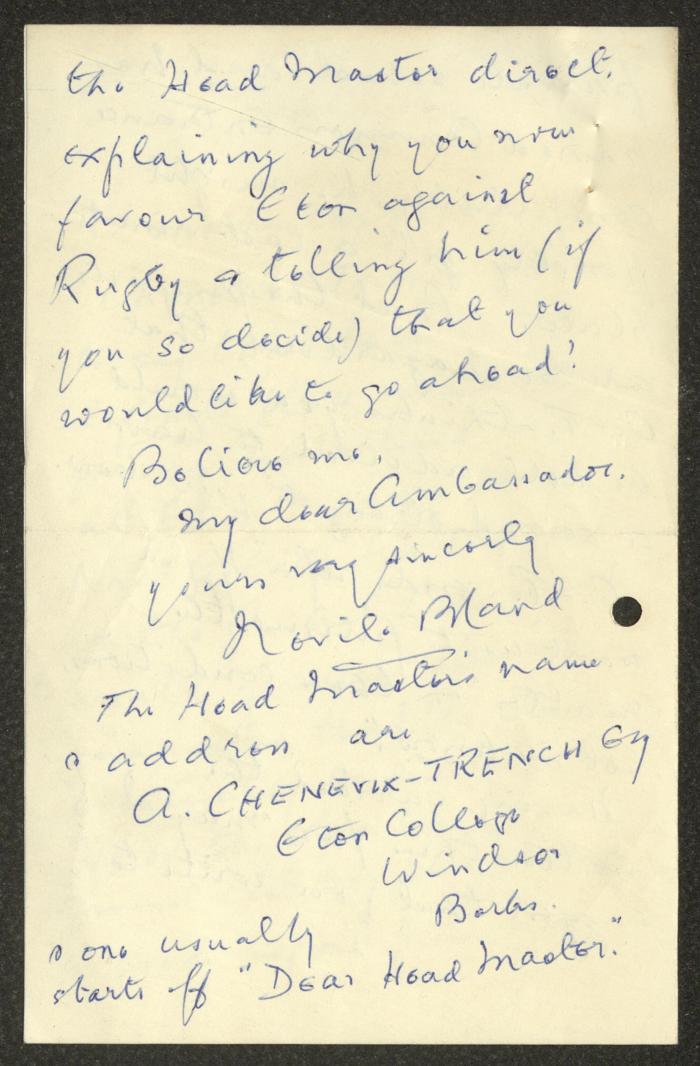 the Head Master direct,
explaining why you now
favour Eton against
Rugby & telling him (if
you so decide) that you
would like to go ahead!
Believe me,
my dear Ambassador,
yours very sincerely
Nevile Bland
The Head Master's name
& address are
A. CHENEVIX-TRENCH Esq
Eton College
Windsor
Berks.
& one usually
starts off "Dear Head Master."